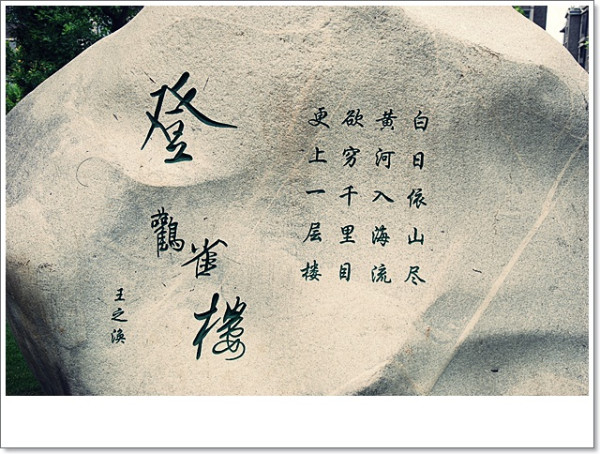 登鸛雀樓
王之涣
白日依山尽
黄河入海流
欲穷千里目
更上一层楼